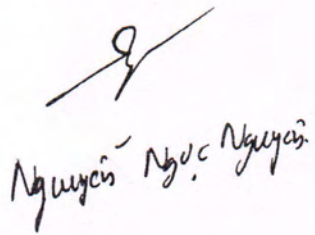 Nguyễn Ngọc Nguyên